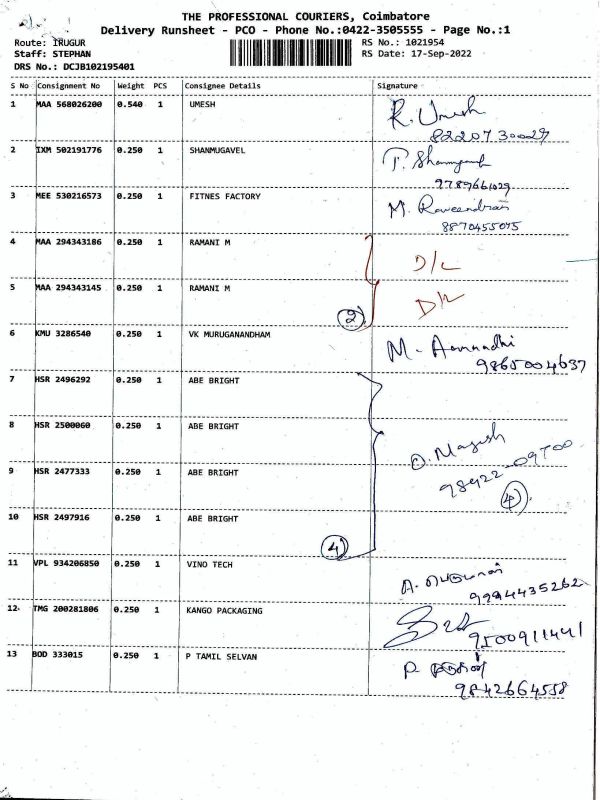 THE PROFESSIONAL COURIERS, Coimbatore
Delivery Runsheet - PCO - Phone No.:0422-3505555 - Page No.:1
Route: IRUGUR RS No.: 1021954
Staff: STEPHAN RS Date: 17-Sep-2022
DRS No.: DCJB102195401
S No Consignment No Weight PCS Consignee Details Signature
1 MAA 568026200 0.540 1 UMESH R. Umesh
82207 30029
2 IXM 502191776 0.250 1 SHANMUGAVEL
9789661029
3 MEE 530216573 0.250 1 FITNES FACTORY M. Raveendran
8870455075
4 MAA 294343186 0.250 1 RAMANI M D/L
5 MAA 294343145 0.250 1 RAMANI M D/L
2
6 KMU 3286540 0.250 1 VK MURUGANANDHAM M.
9865004637
7 HSR 2496292 0.250 1 ABE BRIGHT
8 HSR 2500060 0.250 1 ABE BRIGHT
9 HSR 2477333 0.250 1 ABE BRIGHT 98422-09700
4
10 HSR 2497916 0.250 1 ABE BRIGHT
4
11 VPL 934206850 0.250 1 VINO TECH A.
9994435262
12 TMG 200281806 0.250 1 KANGO PACKAGING
9500911441
13 BOD 333015 0.250 1 P TAMIL SELVAN P.
9842664558